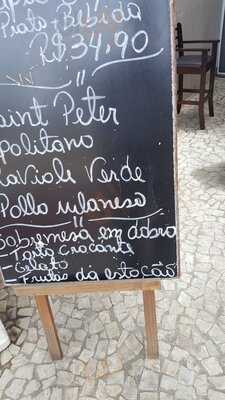 Prato + Bebida
R$ 34,90
"
Saint Peter
politano
Ravioli Verde
Pollo milaneso
"
Sobremesa em dobro
- Torta Crocante
- Gelato
- Frutas da estação